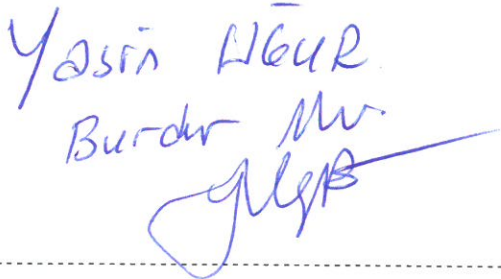 Yasin UĞUR
Burdur Mv.